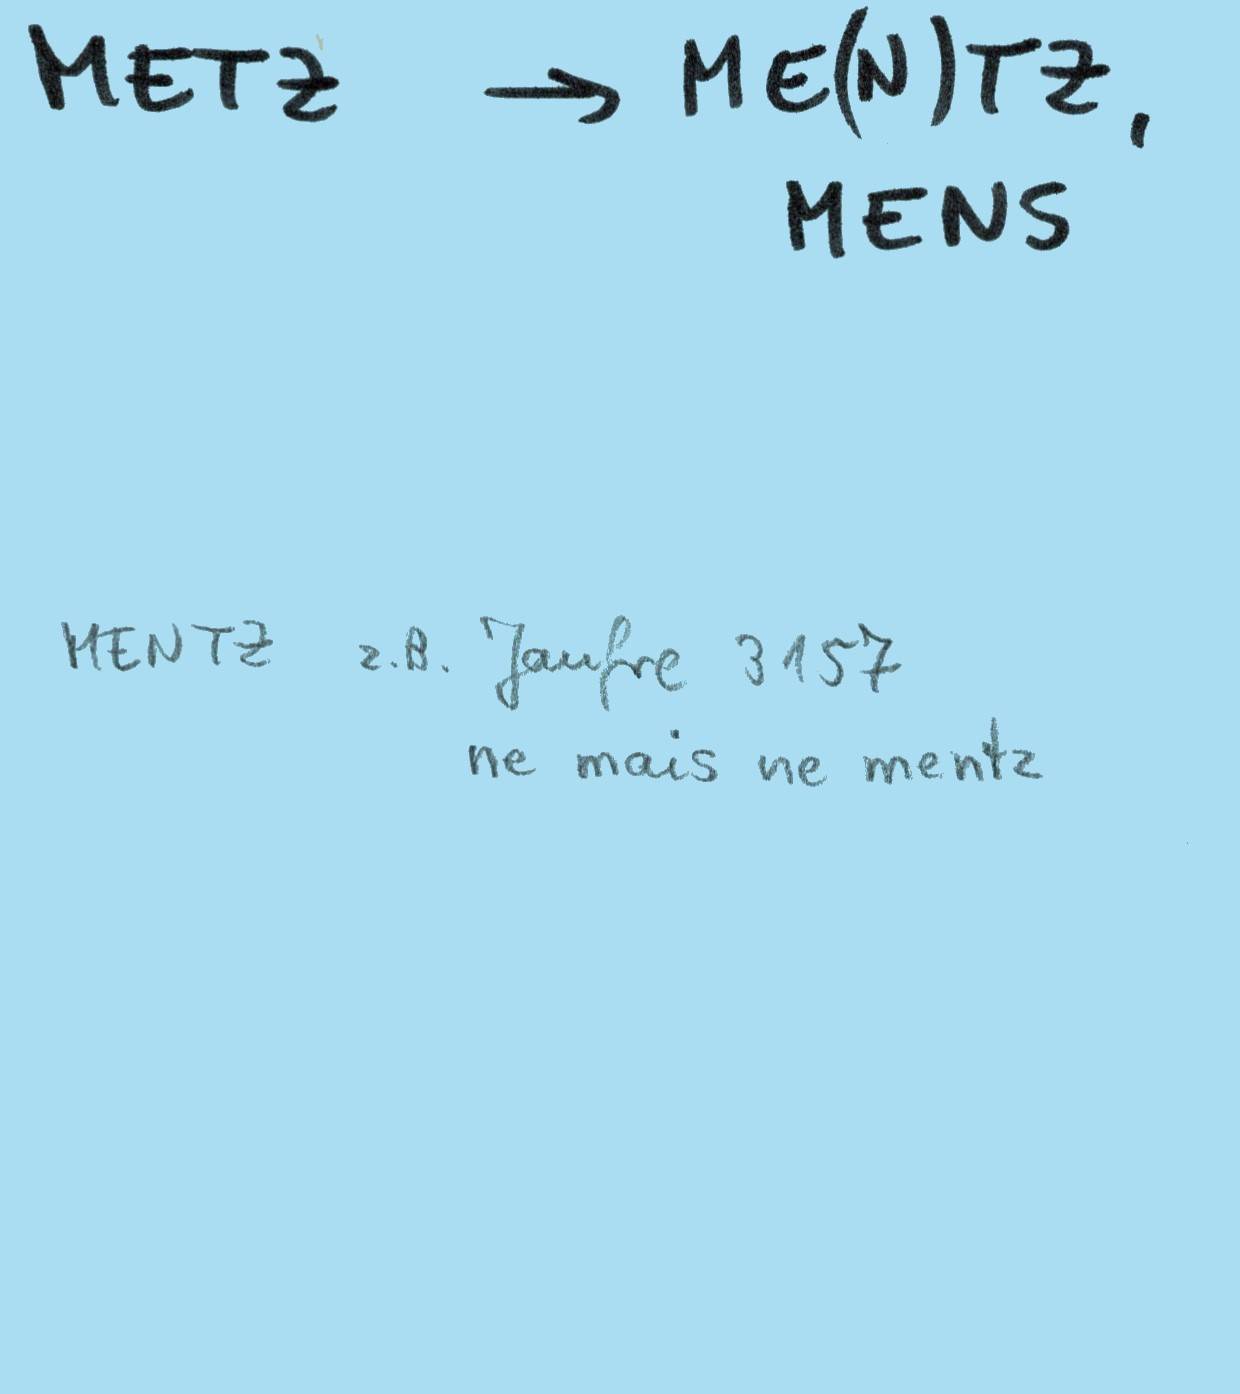 METZ → ME(N)TZ,
MENS
MENTZ z.B. Jaufre 3157
ne mais ne mentz